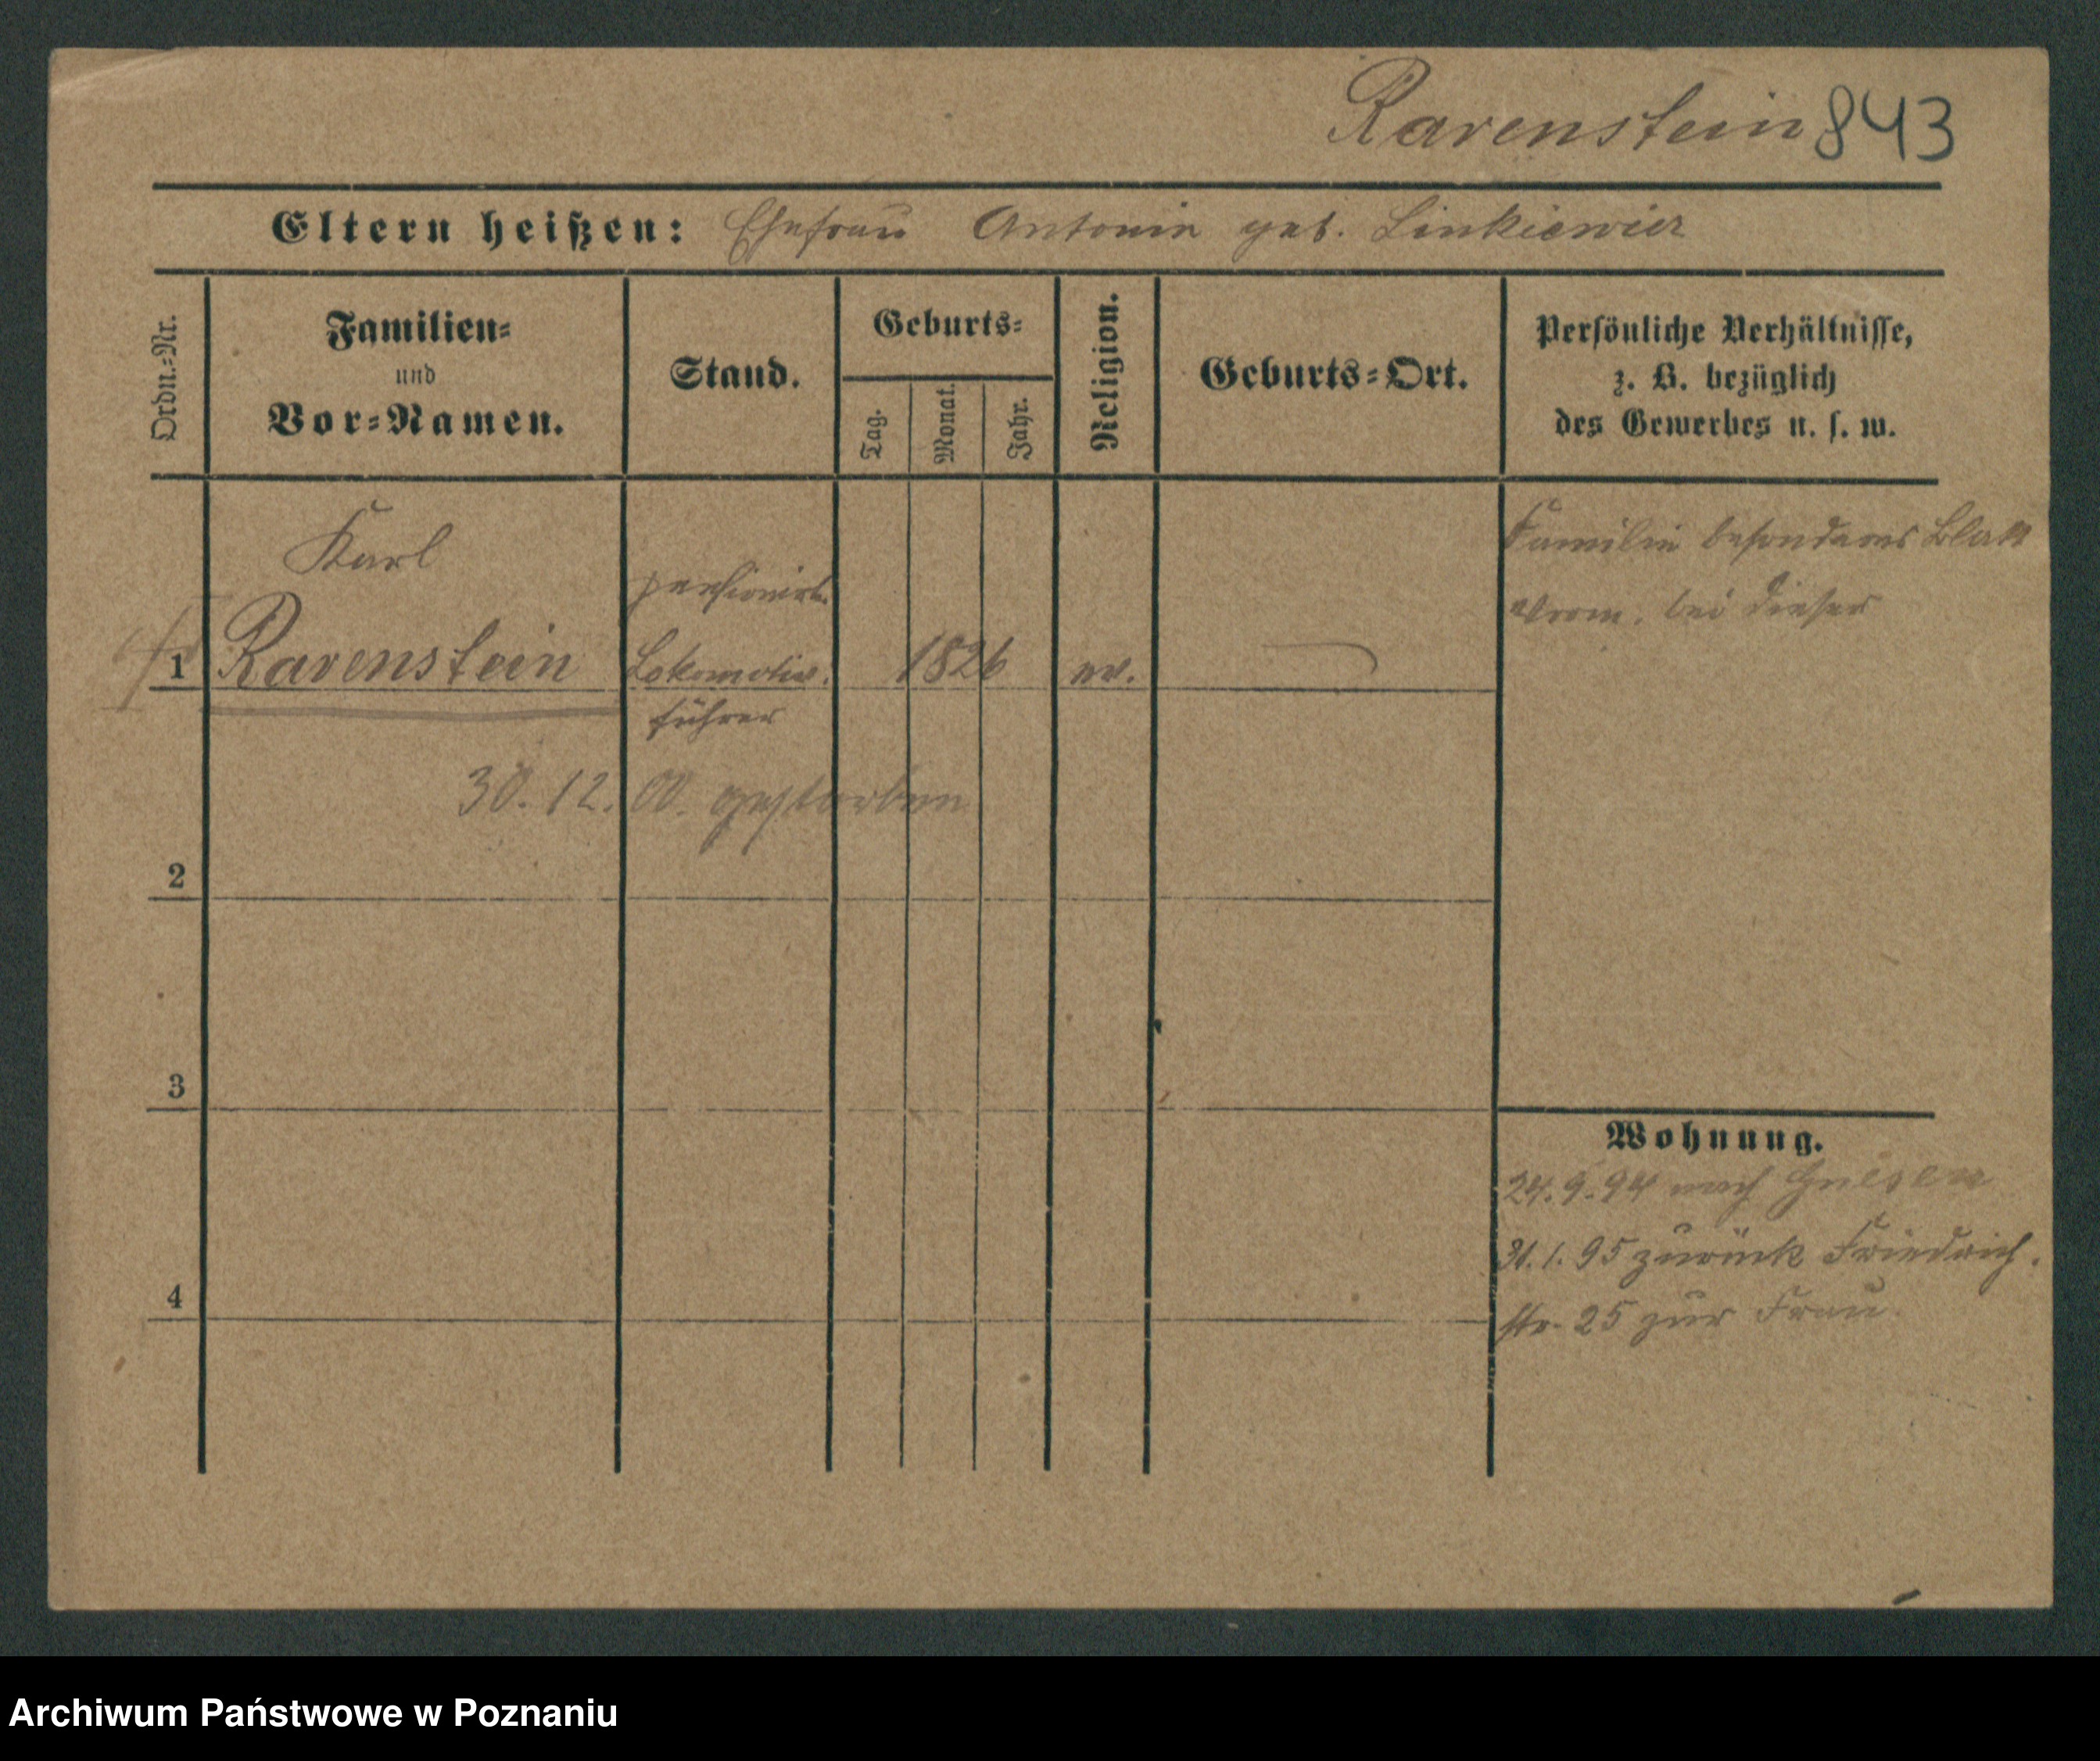 Ravenstein 843
Eltern heißen: Ehefrau Antonie geb. Linkiewicz
Ordn.-Nr.
Familien-
und
Vor-Namen.
Stand.
Geburts-
Tag.
Monat.
Jahr.
Religion.
Geburts-Ort.
Persönliche Verhältnisse,
z. B. bezüglich
des Gewerbes u. s. w.
Karl
1 Ravenstein
pensionirt.
Lokomotiv.
führer
1826
ev.
Familie besonderes Blatt
bei dieser
30. 12. 00. gestorben
2
3
4
Wohnung.
24. 9. 94 nach Gnesen
31. 1. 95 zurück Friedrich.
str. 25 zur Frau.
Archiwum Państwowe w Poznaniu